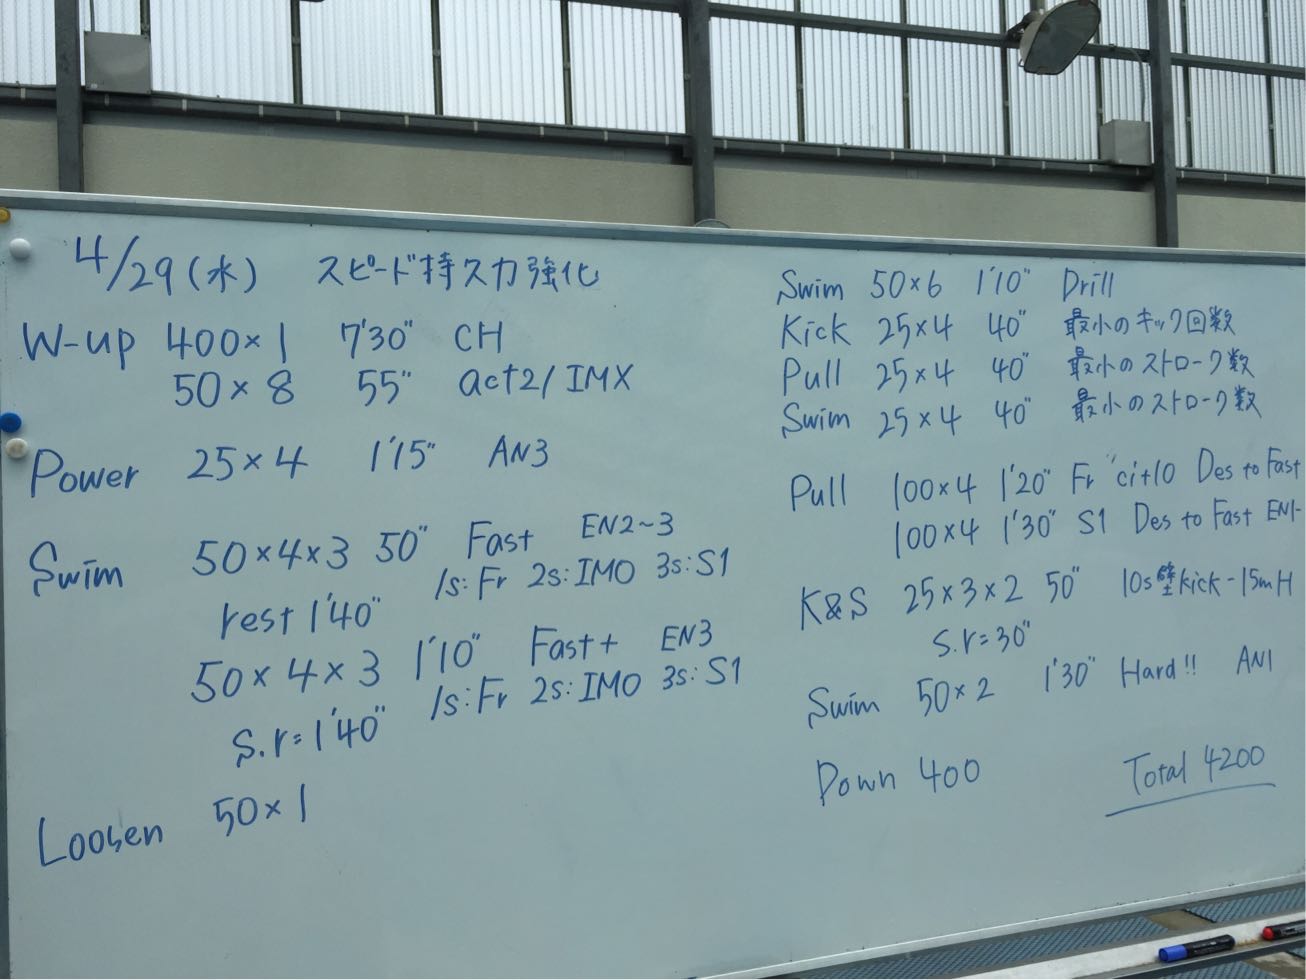 4/29(水) スピード持久力強化
W-up 400×1 7'30" CH
50×8 55" act2/IMX
Power 25×4 1'15" AN3
Swim 50×4×3 50" Fast EN2~3
1s:Fr 2s:IMO 3s:S1
rest 1'40"
50×4×3 1'10" Fast+ EN3
1s:Fr 2s:IMO 3s:S1
S.r=1'40"
Loosen 50×1
Swim 50×6 1'10" Drill
Kick 25×4 40" 最小のキック回数
Pull 25×4 40" 最小のストローク数
Swim 25×4 40" 最小のストローク数
Pull 100×4 1'20" Fr ci+10 Des to Fast
100×4 1'30" S1 Des to Fast EN1-
K&S 25×3×2 50" 10s壁kick-15mH
S.r=30"
Swim 50×2 1'30" Hard!! AN1
Down 400
Total 4200